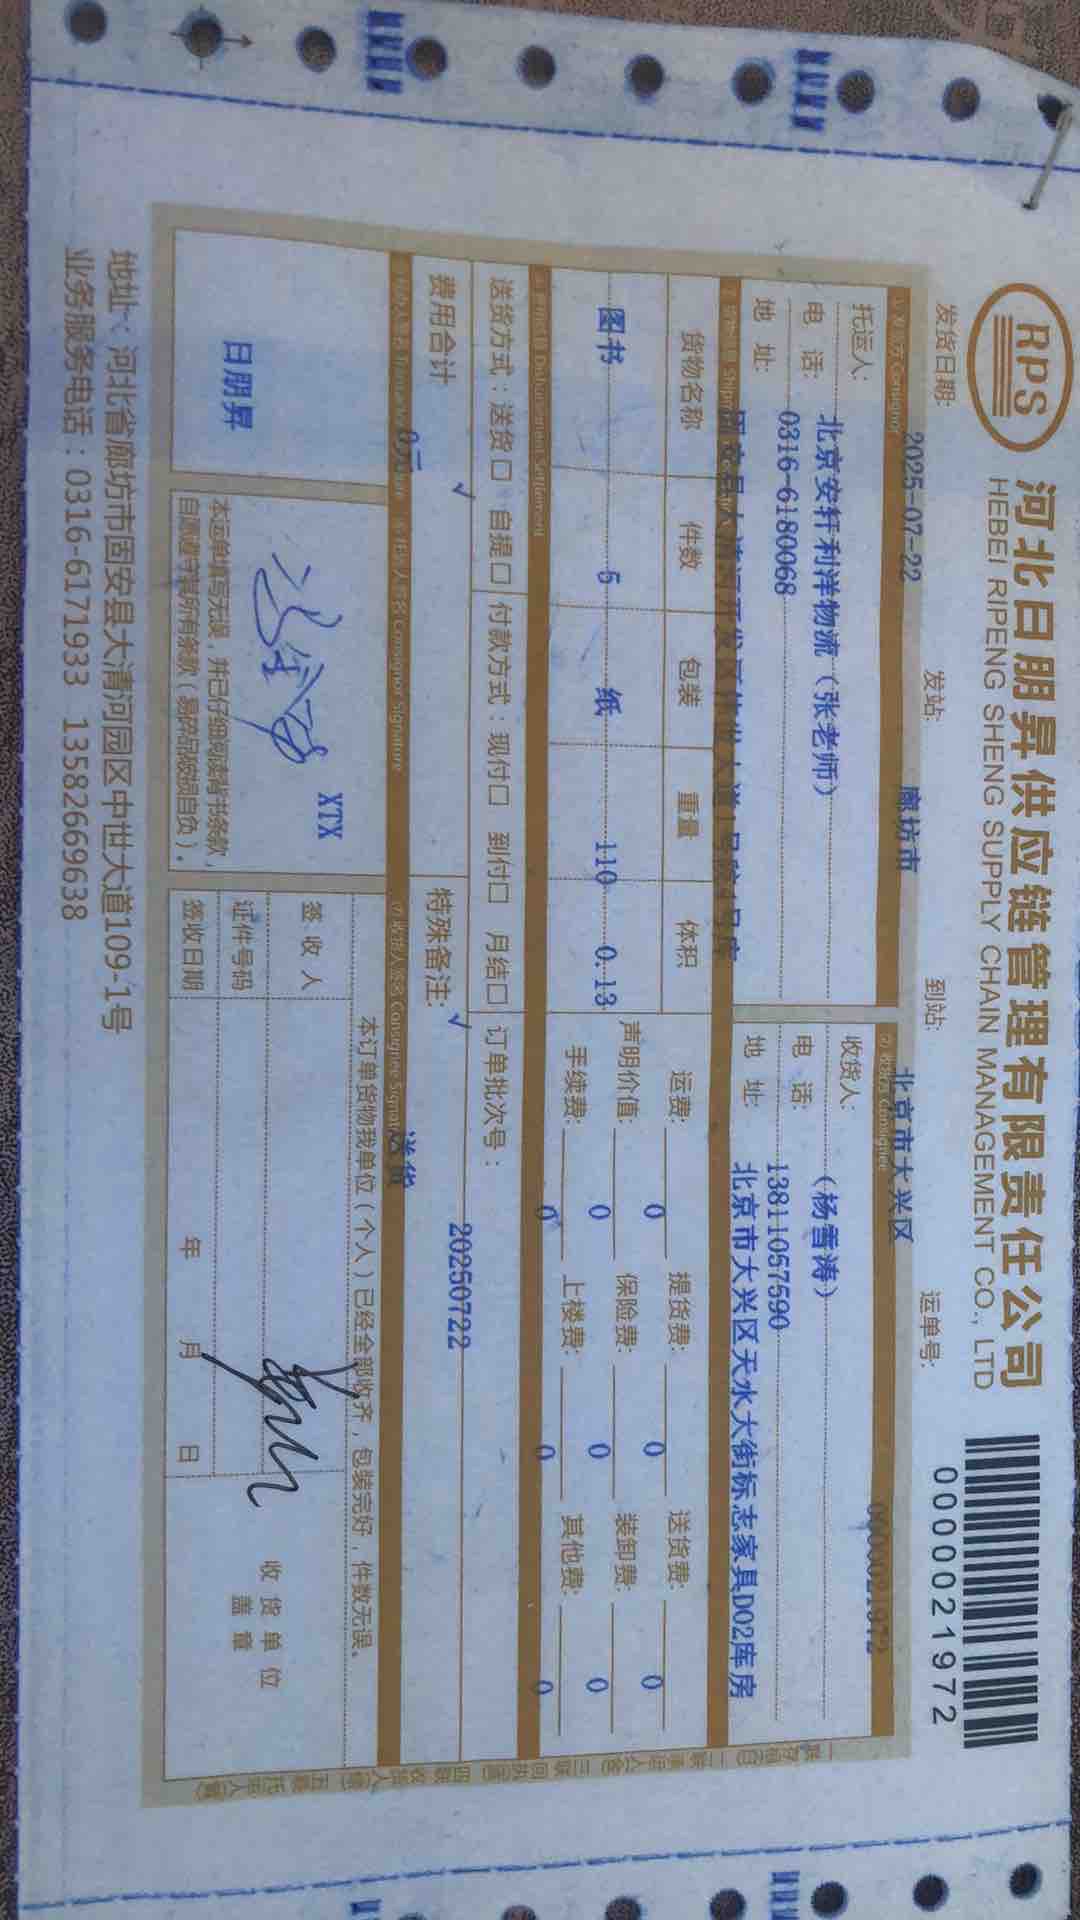 RPS
河北日朋昇供应链管理有限责任公司
HEBEI RIPENG SHENG SUPPLY CHAIN MANAGEMENT CO., LTD
0000021972
发货日期: 2025-07-22 发站: 廊坊市 到站: 北京市大兴区 运单号: 0000021972
Consignor
② 收货方 Consignee
托运人: 北京安轩利洋物流（张老师）
电 话: 0316-6180068
地 址:
收货人: （杨雪涛）
电 话: 13811057590
地 址: 北京市大兴区天水大街标志家具D02库房
货物名称 件数 包装 重量 体积
图书 5 纸 110 0.13
运费: 0 提货费: 0 送货费: 0
声明价值: 0 保险费: 0 装卸费: 0
手续费: 0 上楼费: 0 其他费: 0
Disbursement Settlement
送货方式：送货口 自提口 付款方式：现付口 到付口 月结口 订单批次号：
20250722
费用合计 0元 特殊备注: 送货
Consignor Signature
⑦ 收货人签名 Consignee Signature
日朋昇
XTX
本运单填写无误，并已仔细阅读背书条款，
自愿遵守其所有条款（易碎品破损自负）。
本订单货物我单位（个人）已经全部收齐，包装完好，件数无误。
签 收 人
证件号码
签收日期 年 月 日
收 货 单 位
盖 章
地址：河北省廊坊市固安县大清河园区中世大道109-1号
业务服务电话：0316-6171933 13582669638